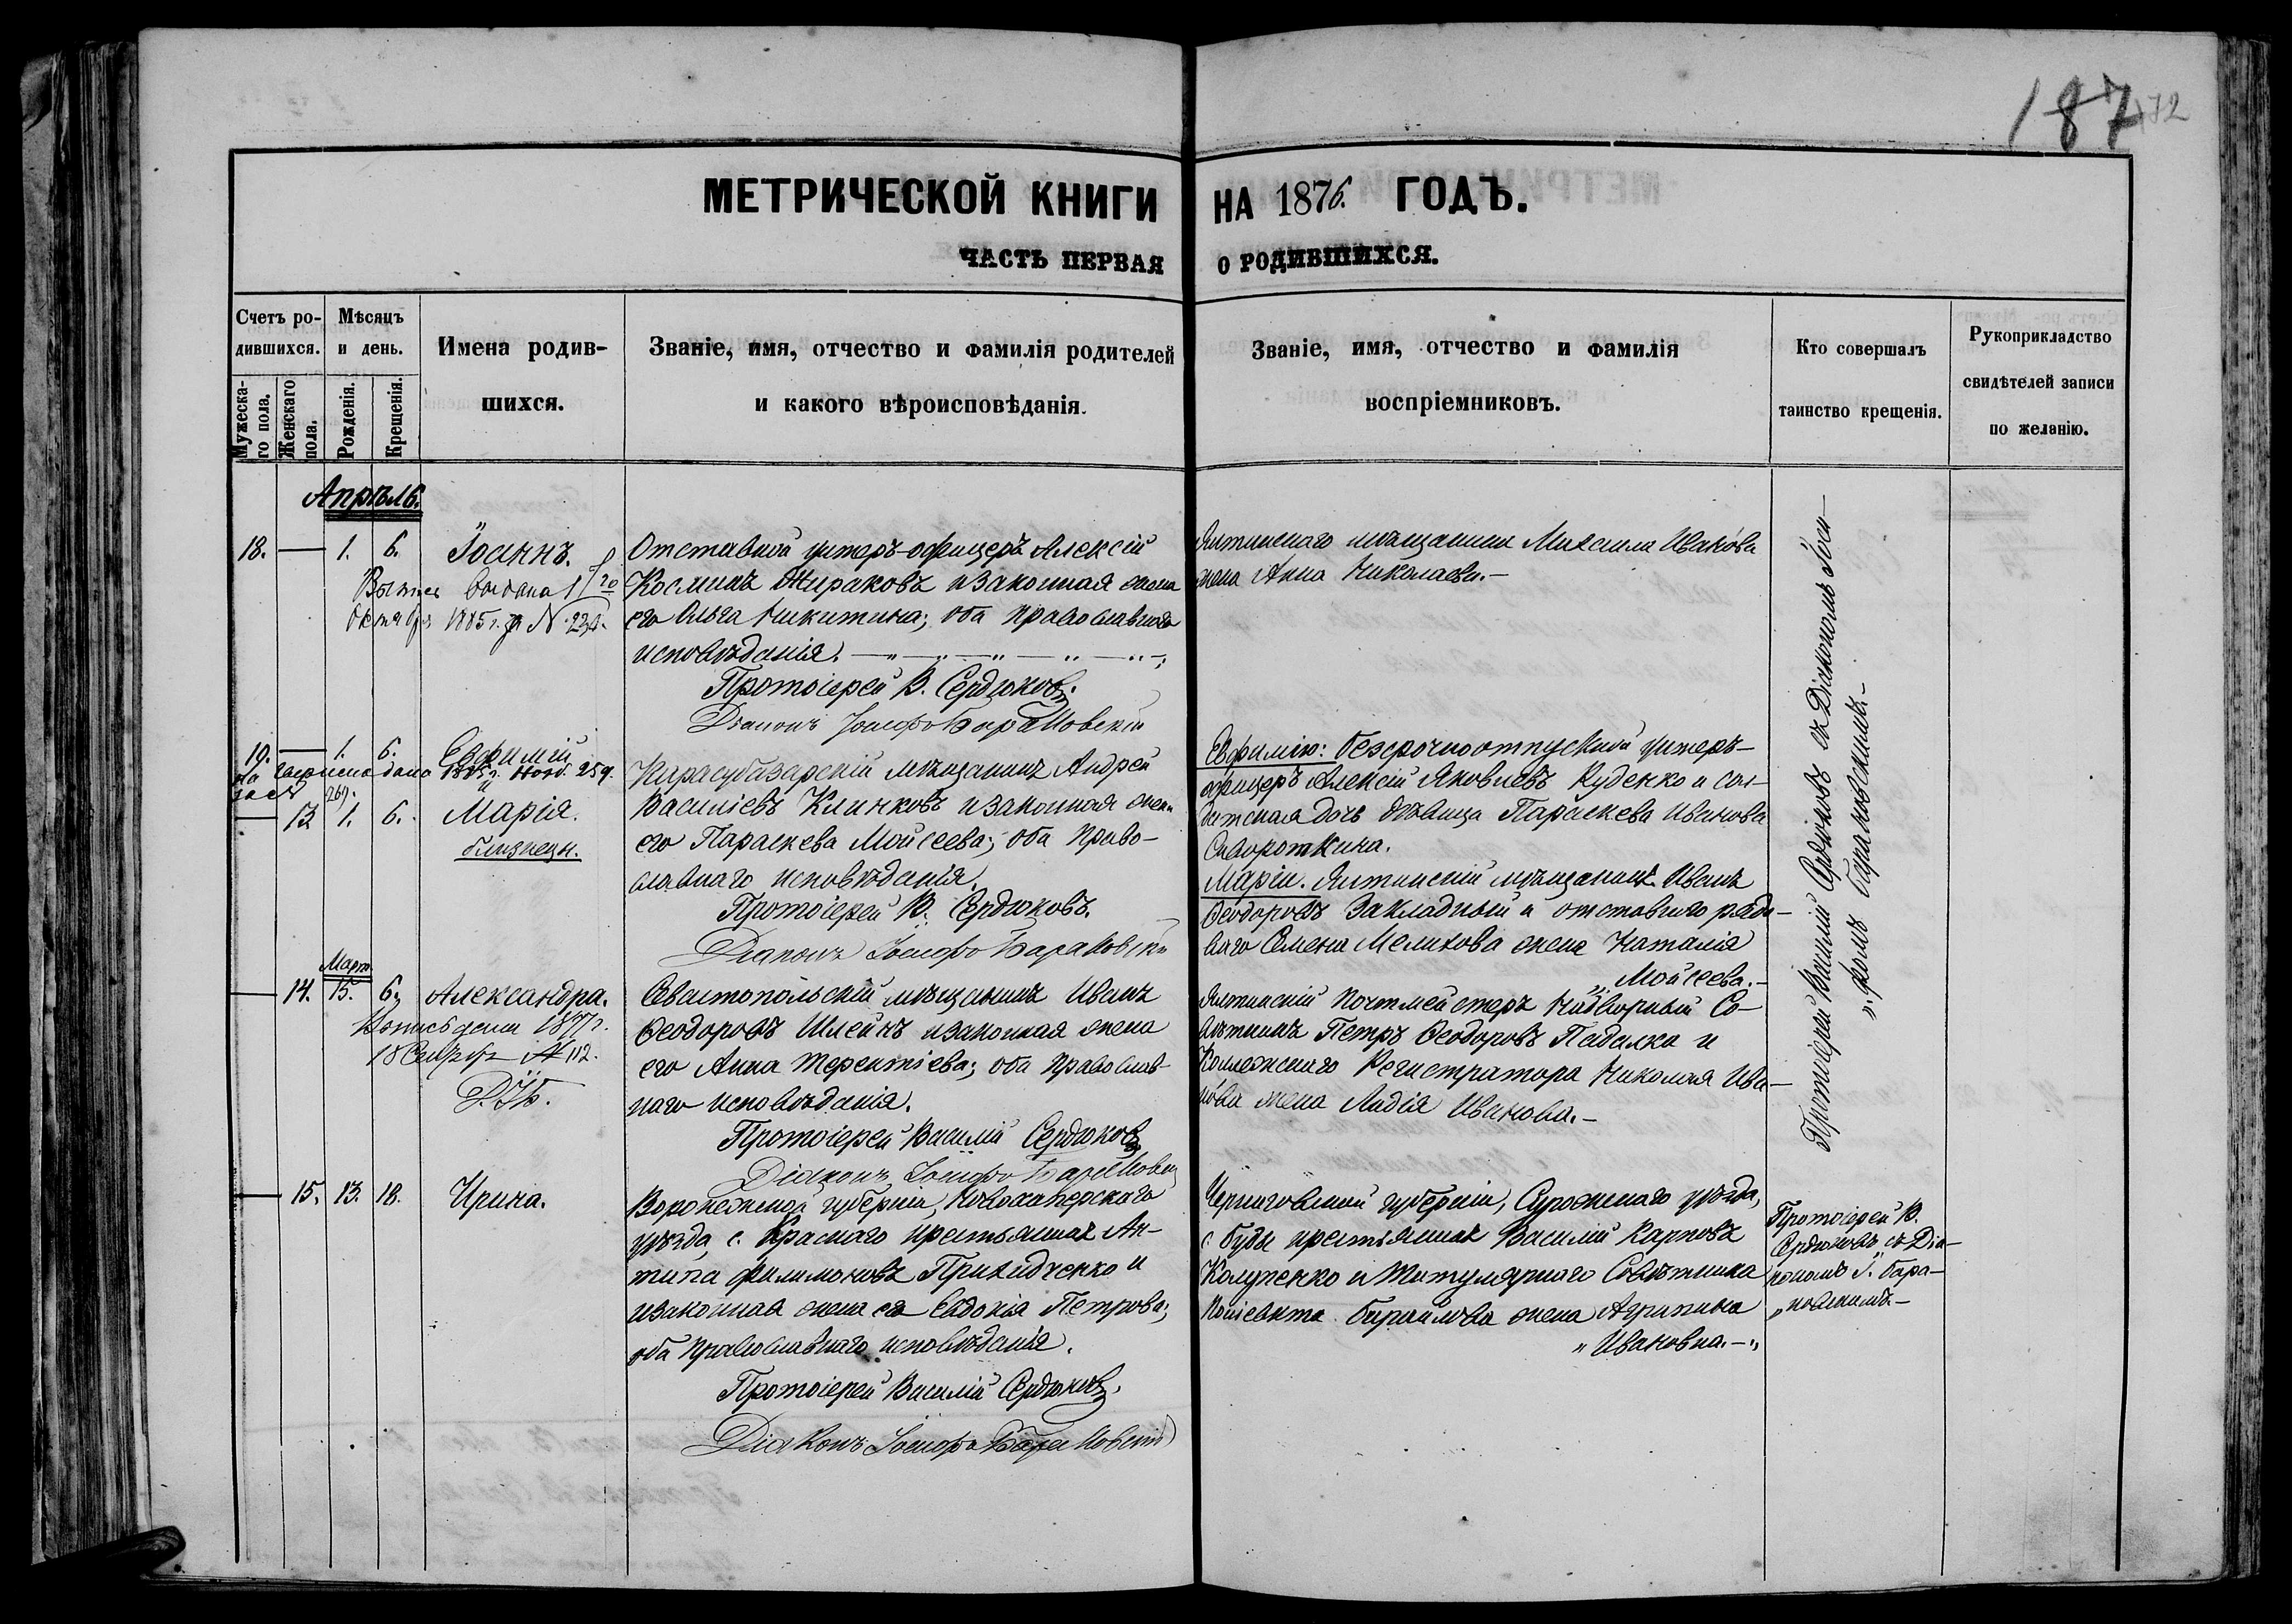 187
172
МЕТРИЧЕСКОЙ КНИГИ НА 1876. ГОДЪ.
ЧАСТЬ ПЕРВАЯ О РОДИВШИХСЯ.
Счетъ ро-
дившихся.
Мужеска-
го пола.
Женскаго
пола.
Мѣсяцъ
и день.
Рожденія.
Крещенія.
Имена родив-
шихся.
Званіе, имя, отчество и фамилія родителей
и какого вѣроисповѣданія.
Званіе, имя, отчество и фамилія
воспріемниковъ.
Кто совершалъ
таинство крещенія.
Рукоприкладство
свидѣтелей записи
по желанію.
Апрѣль.
18. — 1. 6. Іоаннъ.
1885 г. за №
Отставной унтеръ-офицеръ Алексій
Косминъ Жираковъ и законная жена
его Ольга Никитина; оба православнаго
исповѣданія.
Протоіерей В. Сердюковъ.
Діаконъ Іосифъ Барановскій
Ялтинскаго мѣщанина Михаила Ивакова
жена Анна Николаева.—
19. — 1. 6. Евфимій
и
— 13 1. 6. Марія.
близнецы.
1885 г. Нояб. 259.
269.
Карасубазарскій мѣщанинъ Андрей
Василіевъ Клинковъ и законная жена
его Параскева Мойсеева; оба право-
славнаго исповѣданія.
Протоіерей В. Сердюковъ.
Діаконъ Іосифъ Барановскій
Евфимію: безсрочноотпускной унтеръ-
офицеръ Алексій Яковлевъ Руденко и сол-
датская дочь дѣвица Параскева Иванова
Сывороткина.
Маріи. Ялтинскій мѣщанинъ Иванъ
Ѳеодоровъ Закладный и отставного рядо-
ваго Семена Мелихова жена Наталія
Мойсеева.—
Мартъ
— 14. 15. 6. Александра.
Копись дана 1877 г.
18 № 112.
Севастопольскій мѣщанинъ Иванъ
Ѳеодоровъ Шлеинъ и законная жена
его Анна Терентіева; оба православ-
наго исповѣданія.
Протоіерей Василій Сердюковъ
Діаконъ Іосифъ Барановскій
Ялтинскій почтмейстеръ Надворный Со-
вѣтникъ Петръ Ѳеодоровъ Падалка и
Коллежскаго Регистратора Николая Ива-
нова жена Лидія Иванова.—
Протоіерей Василій Сердюковъ съ Діакономъ Іоси-
„фомъ Барановскимъ.—
— 15. 13. 18. Ирина.
Воронежской губерніи, Новохоперскаго
уѣзда, с. Краснаго крестьянинъ Ан-
типа Филимоновъ Прихидченко и
законная жена его Евдокія Петрова;
оба православнаго исповѣданія.
Протоіерей Василій Сердюковъ.
Діаконъ Іосифъ Барановскій
Черниговской губерніи, Суражскаго уѣзда,
с. Буды крестьянинъ Василій Карповъ
Колупенко и Титулярнаго Совѣтника
жена Агрипина
„Ивановна.—„
Протоіерей В.
Сердюковъ съ Діа-
кономъ І. Бара-
„новскимъ.—